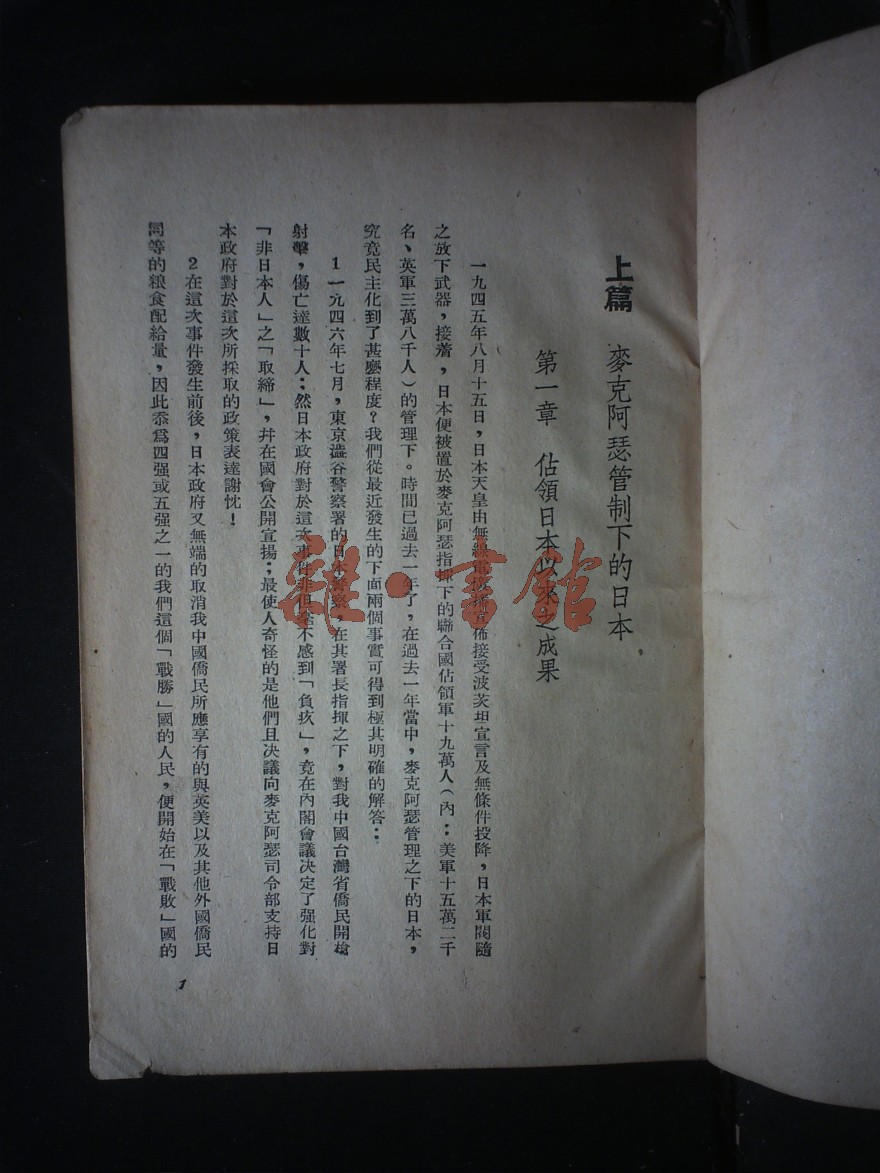 上篇 麥克阿瑟管制下的日本
第一章 佔領日本以來之成果
一九四五年八月十五日，日本天皇由無線電廣播宣佈接受波茨坦宣言及無條件投降，日本軍閥隨
之放下武器，接着，日本便被置於麥克阿瑟指揮下的聯合國佔領軍十九萬人（內：美軍十五萬二千
名、英軍三萬八千人）的管理下。時間已過去一年了，在過去一年當中，麥克阿瑟管理之下的日本，
究竟民主化到了甚麼程度？我們從最近發生的下面兩個事實可得到極其明確的解答：
1 一九四六年七月，東京澁谷警察署的日本警察，在其署長指揮之下，對我中國台灣省僑民開槍
射擊，傷亡達數十人；然日本政府對於這次事件非但不感到「負疚」，竟在內閣會議决定了强化對
「非日本人」之「取締」，幷在國會公開宣揚；最使人奇怪的是他們且决議向麥克阿瑟司令部支持日
本政府對於這次所採取的政策表達謝忱！
2 在這次事件發生前後，日本政府又無端的取消我中國僑民所應享有的與英美以及其他外國僑民
同等的粮食配給量，因此忝爲四强或五强之一的我們這個「戰勝」國的人民，便開始在「戰敗」國的
1
雜·書館